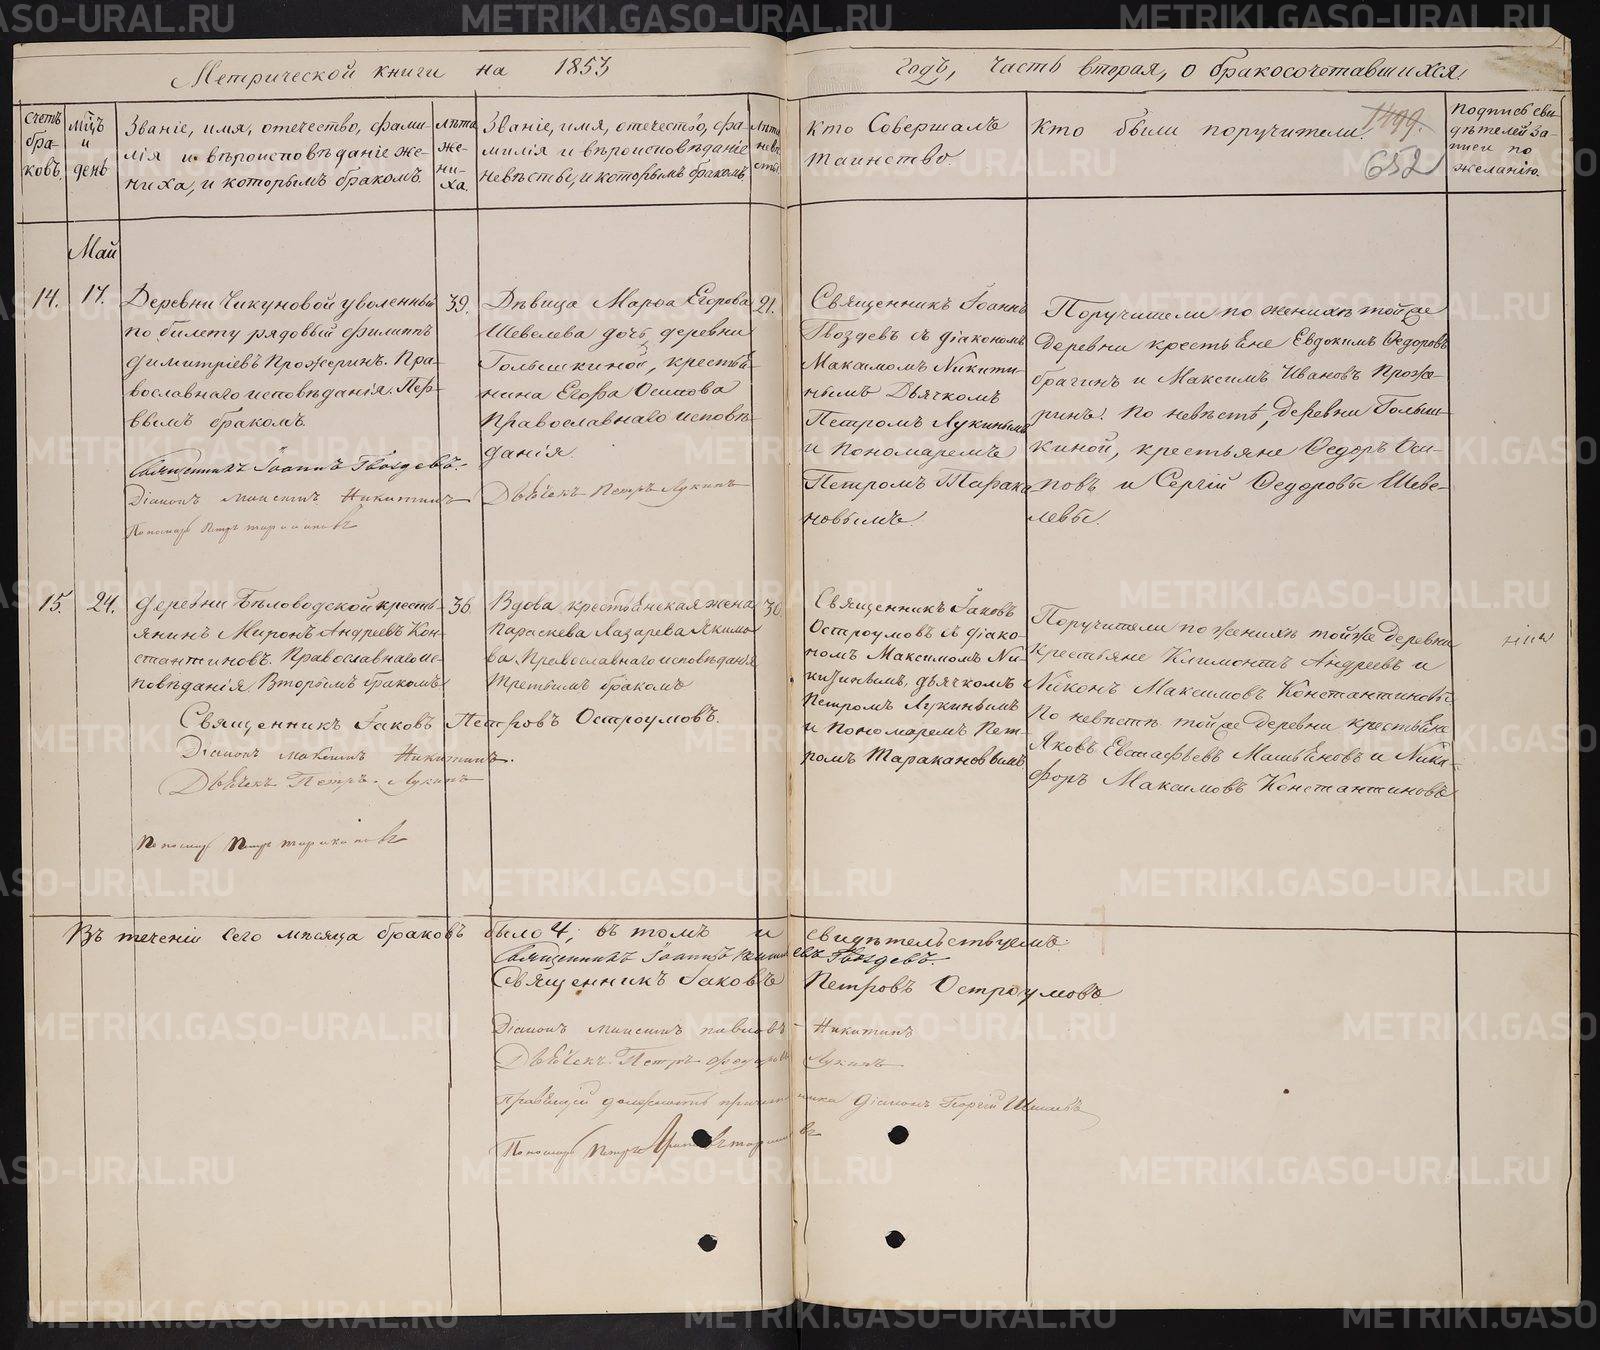 Метрической книги на 1853 годъ, часть вторая, о бракосочетавшихся.
1499.
652
Счетъ бра-ковъ.
Мцъ и день
Званіе, имя, отечество, фами-
лія и вѣроисповѣданіе же-
ниха, и которымъ бракомъ.
лѣта же-ни-ха.
Званіе, имя, отечество, фа-
милія и вѣроисповѣданіе
невѣсты, и которымъ бракомъ
Лѣта невѣ-сты.
Кто Совершалъ
таинство.
Кто были поручители.
Подпись сви-
дѣтелей за-
писи по
желанію.
Май
14.
17.
Деревни Чикуновой уволенный
по билету рядовый Филиппъ
Димитріевъ Прожеринъ. Пра-
вославнаго исповѣданія. Пер-
вымъ бракомъ.
Священникъ Іоаннъ Гвоздевъ.
Діаконъ Максимъ Никитинъ
Пономарь Петръ Таракановъ
39.
Дѣвица Марѳа Егорова
Шевелева дочь, деревни
Голышкиной, крестья-
нина Егора Осипова
Православнаго исповѣ-
данія.
Дьячекъ Петръ Лукинъ
21.
Священникъ Іоаннъ
Гвоздевъ съ діакономъ
Максимомъ Никити-
нымъ Дьячкомъ
Петромъ Лукинымъ
и Пономаремъ
Петромъ Тарака-
новымъ.
Поручители по женихѣ той же
деревни крестьяне Евдокимъ Ѳедоровъ
Брагинъ и Максимъ Ивановъ Проже-
ринъ. По невѣстѣ, деревни Голыш-
киной, крестьяне Ѳедоръ Оси-
повъ и Сергій Ѳедоровы Шеве-
левы.
15.
24.
Деревни Бѣловодской кресть-
янинъ Миронъ Андреевъ Кон-
стантиновъ. Православнаго ис-
повѣданія. Вторымъ бракомъ
Священникъ Іаковъ Петровъ Остроумовъ.
Діаконъ Максимъ Никитинъ.
Дьячекъ Петръ Лукинъ
Пономарь Петръ Таракановъ
36.
Вдова крестьянская жена
Параскева Лазарева Якимо-
ва Православнаго исповѣданія
Третьимъ бракомъ
30.
Священникъ Іаковъ
Остроумовъ съ діако-
номъ Максимомъ Ни-
китинымъ, дьячкомъ
Петромъ Лукинымъ
и Пономаремъ Пет-
ромъ Таракановымъ
Поручители по женихѣ той же деревни
крестьяне Климонтъ Андреевъ и
Никонъ Максимовъ Константиновы
По невѣстѣ той же деревни крестьяне
Яковъ Евстафьевъ и Ники-
форъ Максимовъ Константиновъ
Въ теченіи сего мѣсяца браковъ было 4, въ томъ и свидѣтельствуемъ.
Священникъ Іоаннъ Гвоздевъ.
Священникъ Іаковъ Петровъ Остроумовъ
Діаконъ Максимъ Павловъ Никитинъ
Дьячекъ Петръ Ѳедоровъ Лукинъ
Правящій должность причетника Діаконъ Георгій
Пономарь Петръ
METRIKI.GASO-URAL.RU